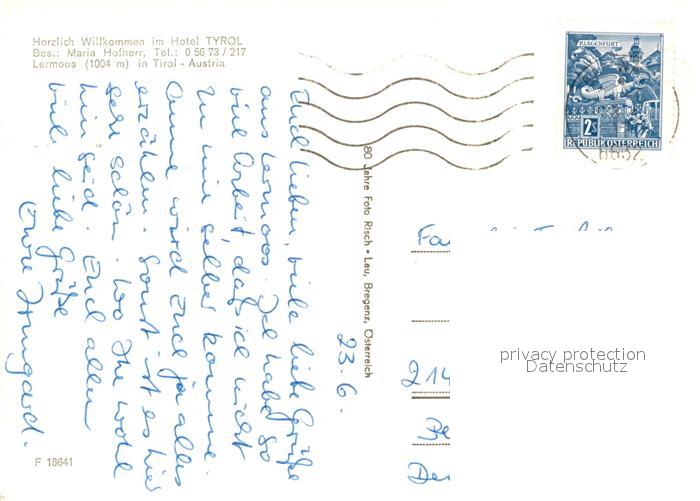 Herzlich Willkommen im Hotel TYROL
Bes.: Maria Hofherr, Tel.: 0 56 73 / 217
Lermoos (1004 m) in Tirol - Austria
KLAGENFURT
2S
REPUBLIK ÖSTERREICH
23. 6.
Euch Lieben, viele liebe Grüße
aus Lermoos. Ich habe so
viel Arbeit, daß ich nicht
zu mir selber komme.
Anne wird Euch ja alles
erzählen. Sonst ist es hier
sehr schön. Wo Ihr wohl
hin seid. Euch allen
viele liebe Grüße
Eure Irmgard.
80 Jahre Foto Risch • Lau, Bregenz, Österreich
214
privacy protection
Datenschutz
F 18641